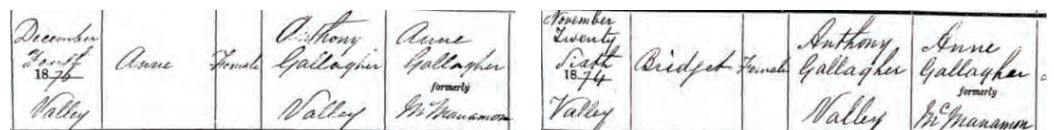 December
Fourth
1876
Valley
Anne
Female
Anthony
Gallagher
Valley
Anne
Gallagher
formerly
McManamon
November
Twenty
Sixth
1874
Valley
Bridget
Female
Anthony
Gallagher
Valley
Anne
Gallagher
formerly
McManamon